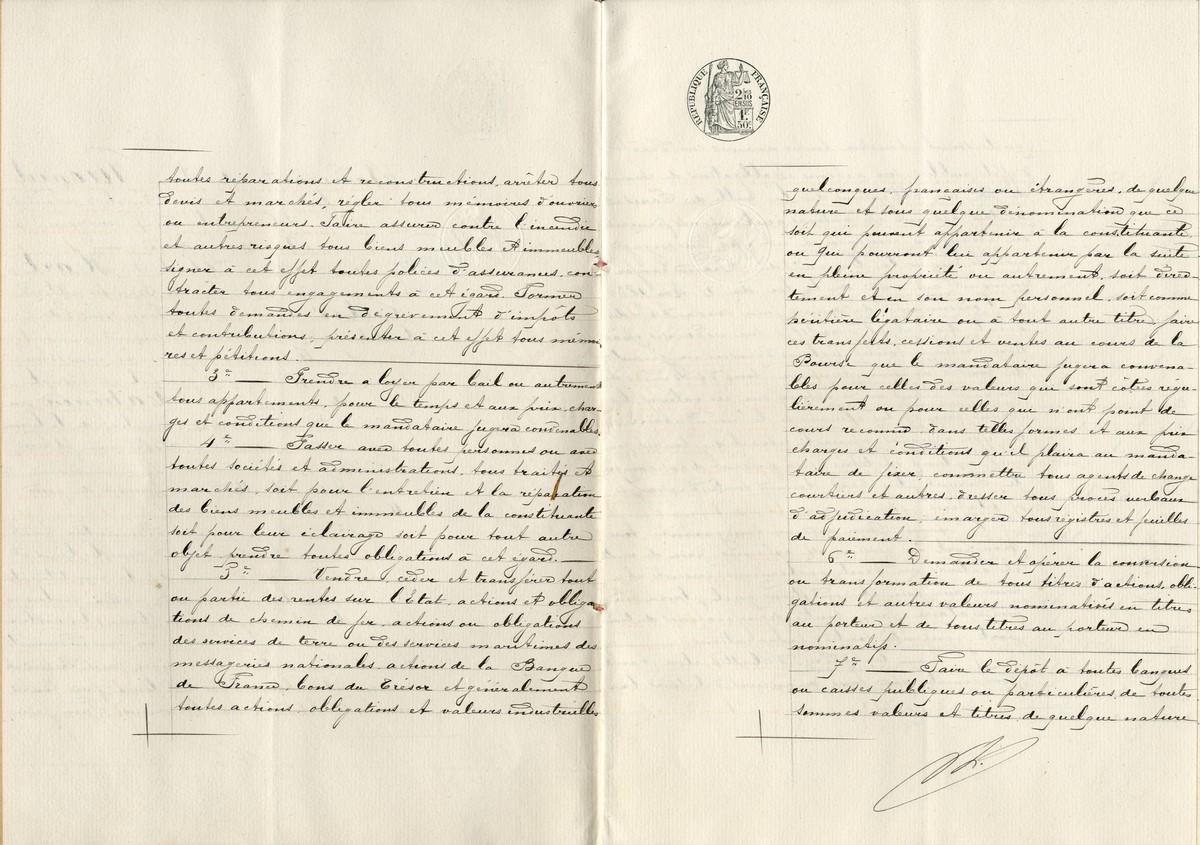 toutes réparations et reconstructions, arrêter tous
devis et marchés, régler tous mémoires d'ouvriers
ou entrepreneurs. Faire assurer contre l'incendie
et autres risques tous biens meubles et immeubles,
signer à cet effet toutes polices d'assurances, con-
tracter tous engagements à cet égard. Former
toutes demandes en dégrèvement d'impôts
et contributions, présenter à cet effet tous mémoi-
res et pétitions.
3ent — Prendre a loyer par bail ou autrement
tous appartements, pour le temps et aux prix, char-
ges et conditions que le mandataire jugera convenables.
4ent — Passer avec toutes personnes ou avec
toutes sociétés et administrations, tous traités et
marchés, soit pour l'entretien et la réparation
des biens meubles et immeubles de la constituante
soit pour leur éclairage soit pour tout autre
objet prendre toutes obligations à cet égard. —
5ent — Vendre, céder et transférer tout
ou partie des rentes sur l'Etat, actions et obliga-
tions de chemin de fer, actions ou obligations
des services de terre ou des services maritimes des
messageries nationales, actions de la Banque
de France, bons du Trésor et généralement
toutes actions, obligations et valeurs industrielles
RÉPUBLIQUE FRANÇAISE
2/10
EN SUS
1F
50c
quelconques, françaises ou étrangères, de quelque
nature et sous quelque dénomination que ce
soit qui peuvent appartenir à la constituante
ou qui pourront lui appartenir par la suite
en pleine propriété ou autrement, soit direc-
tement et en son nom personnel, soit comme
héritière légataire ou à tout autre titre, faire
ces transferts, cessions et ventes au cours de la
Bourse que le mandataire jugera convena-
bles pour celles des valeurs qui sont côtées régu-
lièrement ou pour celles qui n'ont point de
cours reconnu dans telles formes et aux prix
charges et conditions qu'il plaira au manda-
taire de fixer, commettre tous agents de change
courtiers et autres, dresser tous procès verbaux
d'adjudication, émarger tous registres et feuilles
de paiement.
6ent — Demander et opérer la conversion
ou transformation de tous titres d'actions, obli-
gations et autres valeurs nominatives en titres
au porteur et de tous titres au porteur en
nominatifs.
7ent — Faire le dépôt à toutes banques
ou caisses publiques ou particulières, de toutes
sommes valeurs et titres, de quelque nature